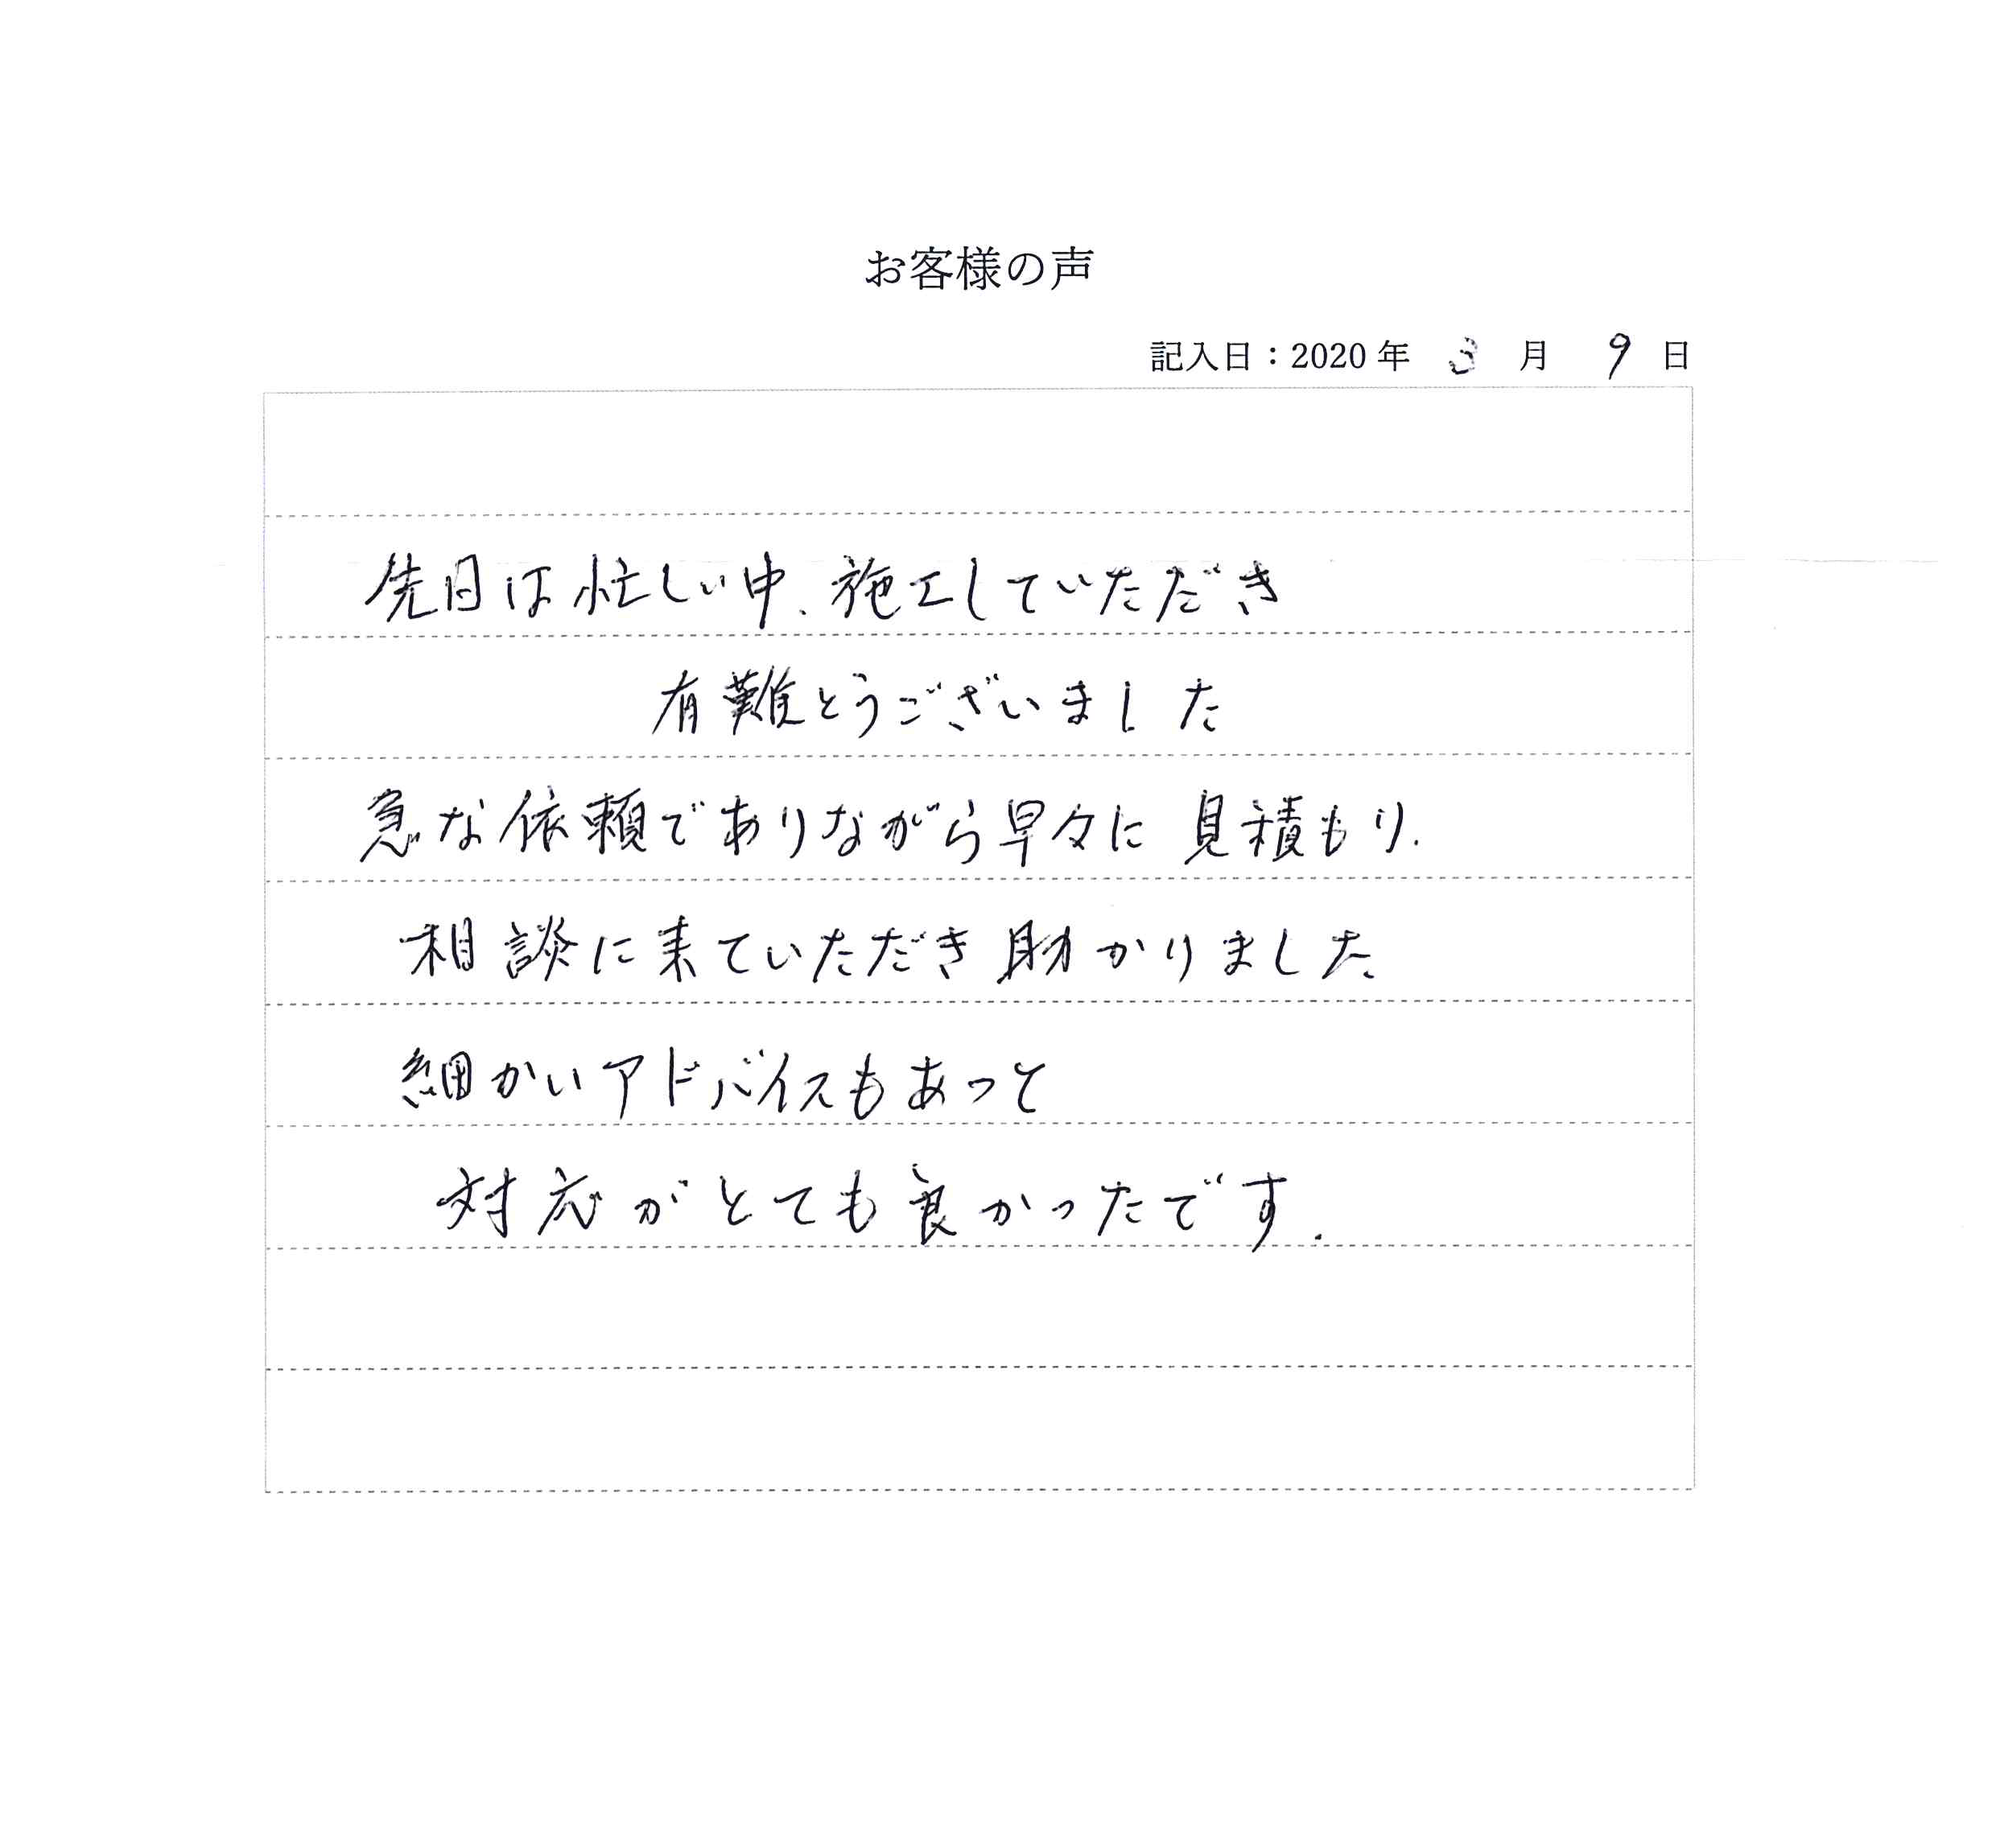 お客様の声
記入日：2020年 3 月 9 日
先日は忙しい中、施工していただき
有難とうございました
急な依頼でありながら早々に見積もり.
相談に来ていただき助かりました
細かいアドバイスもあって
対応がとても良かったです.